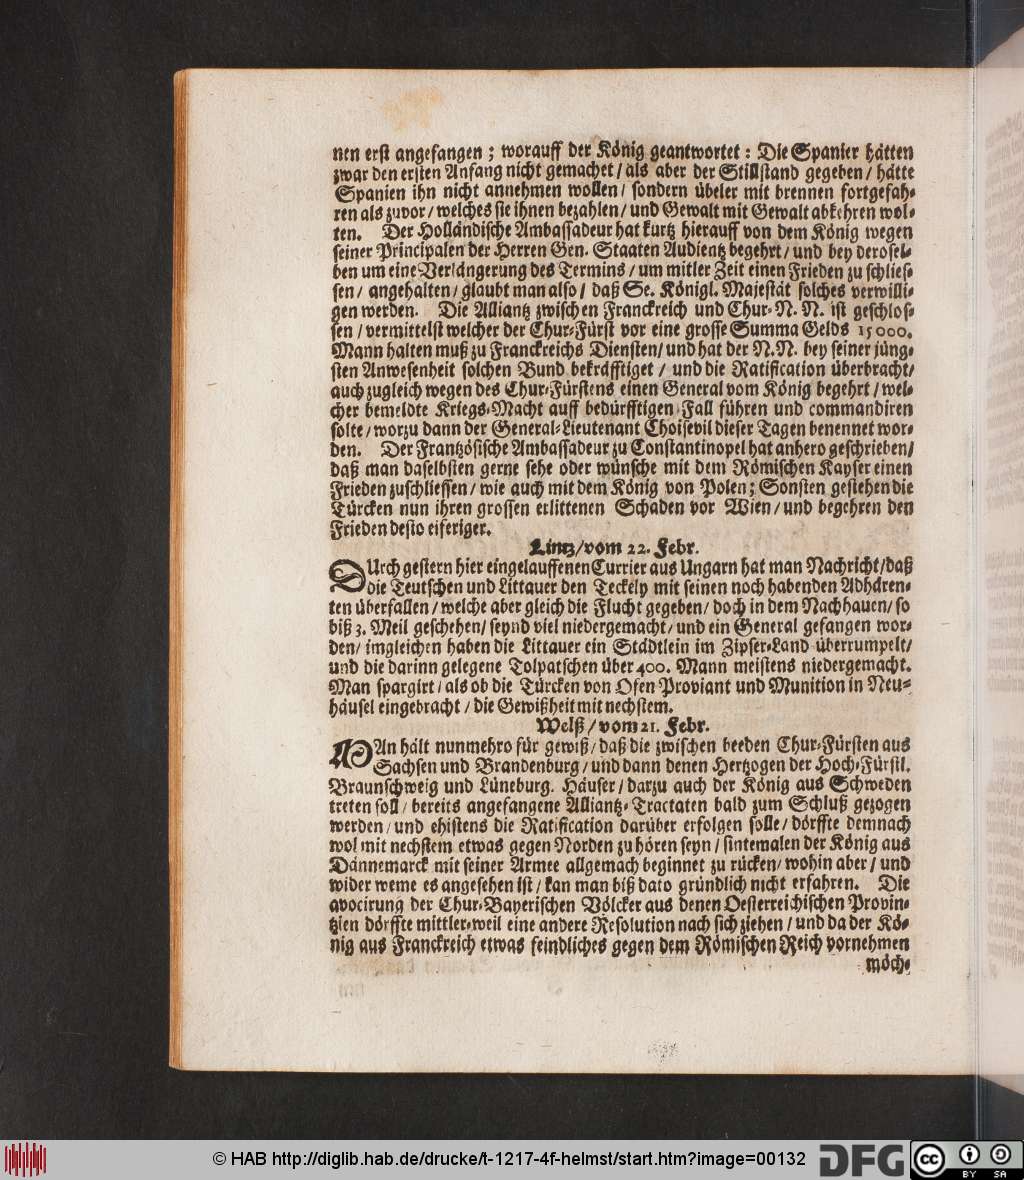 nen erst angefangen ; worauff der König geantwortet : Die Spanier hätten
zwar den ersten Anfang nicht gemachet / als aber der Stillstand gegeben / hätte
Spanien ihn nicht annehmen wollen / sondern übeler mit brennen fortgefah-
ren als zuvor / welches sie ihnen bezahlen / und Gewalt mit Gewalt abkehren wol-
ten. Der Holländische Ambassadeur hat kurtz hierauff von dem König wegen
seiner Principalen der Herren Gen. Staaten Audientz begehrt / und bey derosel-
ben um eine Verlängerung des Termins / um mitler Zeit einen Frieden zu schlies-
sen / angehalten / glaubt man also / daß Se. Königl. Majestät solches verwilli-
gen werden. Die Alliantz zwischen Franckreich und Chur-N. N. ist geschlos-
sen / vermittelst welcher der Chur-Fürst vor eine grosse Summa Gelds 15000.
Mann halten muß zu Franckreichs Diensten / und hat der N.N. bey seiner jüng-
sten Anwesenheit solchen Bund bekräfftiget / und die Ratification überbracht /
auch zugleich wegen des Chur-Fürstens einen General vom König begehrt / wel-
cher bemeldte Kriegs-Macht auff bedürfftigen Fall führen und commandiren
solte / worzu dann der General-Lieutenant Choisevil dieser Tagen benennet wor-
den. Der Frantzösische Ambassadeur zu Constantinopel hat anhero geschrieben /
daß man daselbsten gerne sehe oder wünsche mit dem Römischen Kayser einen
Frieden zuschliessen / wie auch mit dem König von Polen ; Sonsten gestehen die
Türcken nun ihren grossen erlittenen Schaden vor Wien / und begehren den
Frieden desto eiferiger.
Lintz / vom 22. Febr.
DUrch gestern hier eingelauffenen Currier aus Ungarn hat man Nachricht / daß
die Teutschen und Littauer den Teckely mit seinen noch habenden Adhären-
ten überfallen / welche aber gleich die Flucht gegeben / doch in dem Nachhauen / so
biß 3. Meil geschehen / seynd viel niedergemacht / und ein General gefangen wor-
den / imgleichen haben die Littauer ein Städtlein im Zipser-Land überrumpelt /
und die darinn gelegene Tolpatschen über 400. Mann meistens niedergemacht.
Man spargirt / als ob die Türcken von Ofen Proviant und Munition in Neu-
häusel eingebracht / die Gewißheit mit nechstem.
Welß / vom 21. Febr.
MAn hält nunmehro für gewiß / daß die zwischen beeden Chur-Fürsten aus
Sachsen und Brandenburg / und dann denen Hertzogen der Hoch-Fürstl.
Braunschweig und Lüneburg. Häuser / darzu auch der König aus Schweden
treten soll / bereits angefangene Alliantz-Tractaten bald zum Schluß gezogen
werden / und ehistens die Ratification darüber erfolgen solle / dörffte demnach
wol mit nechstem etwas gegen Norden zu hören seyn / sintemalen der König aus
Dännemarck mit seiner Armee allgemach beginnet zu rücken / wohin aber / und
wider weme es angesehen ist / kan man biß dato gründlich nicht erfahren. Die
avocirung der Chur-Bayerischen Völcker aus denen Oesterreichischen Provin-
tzien dörffte mittler-weil eine andere Resolution nach sich ziehen / und da der Kö-
nig aus Franckreich etwas feindliches gegen dem Römischen Reich vornehmen
möch-
© HAB http://diglib.hab.de/drucke/t-1217-4f-helmst/start.htm?image=00132
DFG
cc BY SA